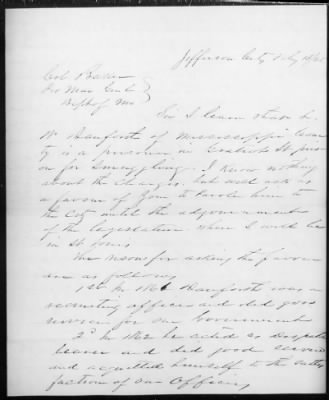 Jefferson City Feby 18/65
Col Baker
Pro Mar Genl
Dept of Mo
Sir I learn that
W Danforth of Mississippi Coun
ty is a prisoner in Gratiot St pris
on for Smuggling. I know nothing
about the charges. but will ask as
a favour of you to Parole him to
the City until the adjournment
of the Legislature when I will be
in St Louis
The reasons for asking the favour
are as follows
1st In 1861 Danforth was a
recruiting officer and did good
service for our Government
2d In 1862 he acted as Despatch
bearer and did good service
and acquitted himself to the satis
faction of our Officers